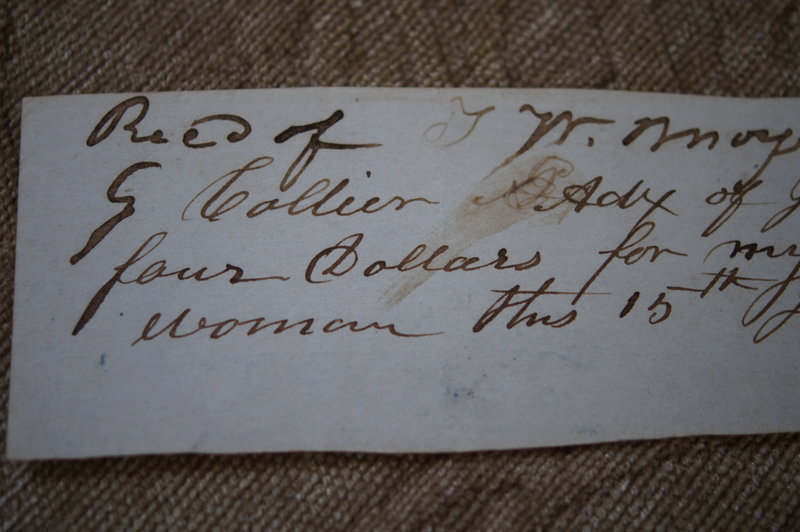 Recd of J W. Moy
G Collier Adx of
four Dollars for my
woman this 15th